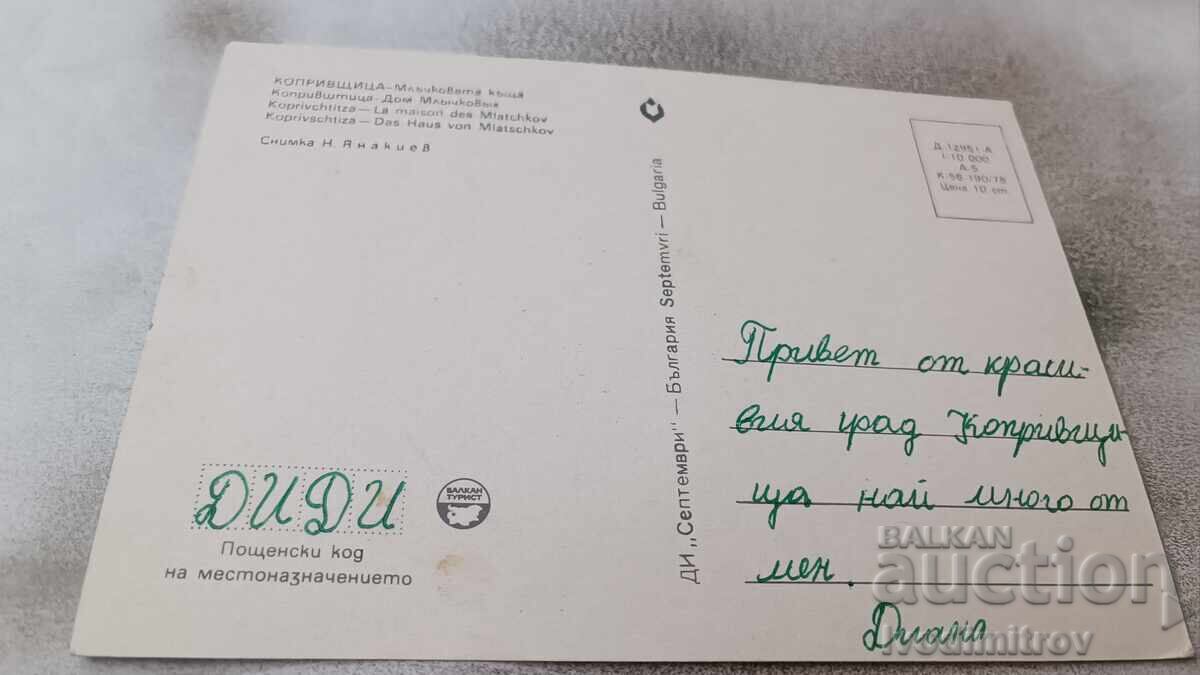 КОПРИВЩИЦА — Млъчковата къща
Копривштица - Дом Млычковых
Koprivchtitza — La maison des Mlatchkov
Koprivschtiza — Das Haus von Mlatschkov
Снимка Н. Янакиев
Д-12951-А
1-10 000
А-5
К-56-190/78
Цена 10 ст.
ДИ „Септември" — България Septemvri — Bulgaria
Привет от краси-
вия град Копривщи-
ца най много от
мен.
Диана
ДИДИ
БАЛКАН
ТУРИСТ
Пощенски код
на местоназначението
BALKAN
auction
ivodimitrov